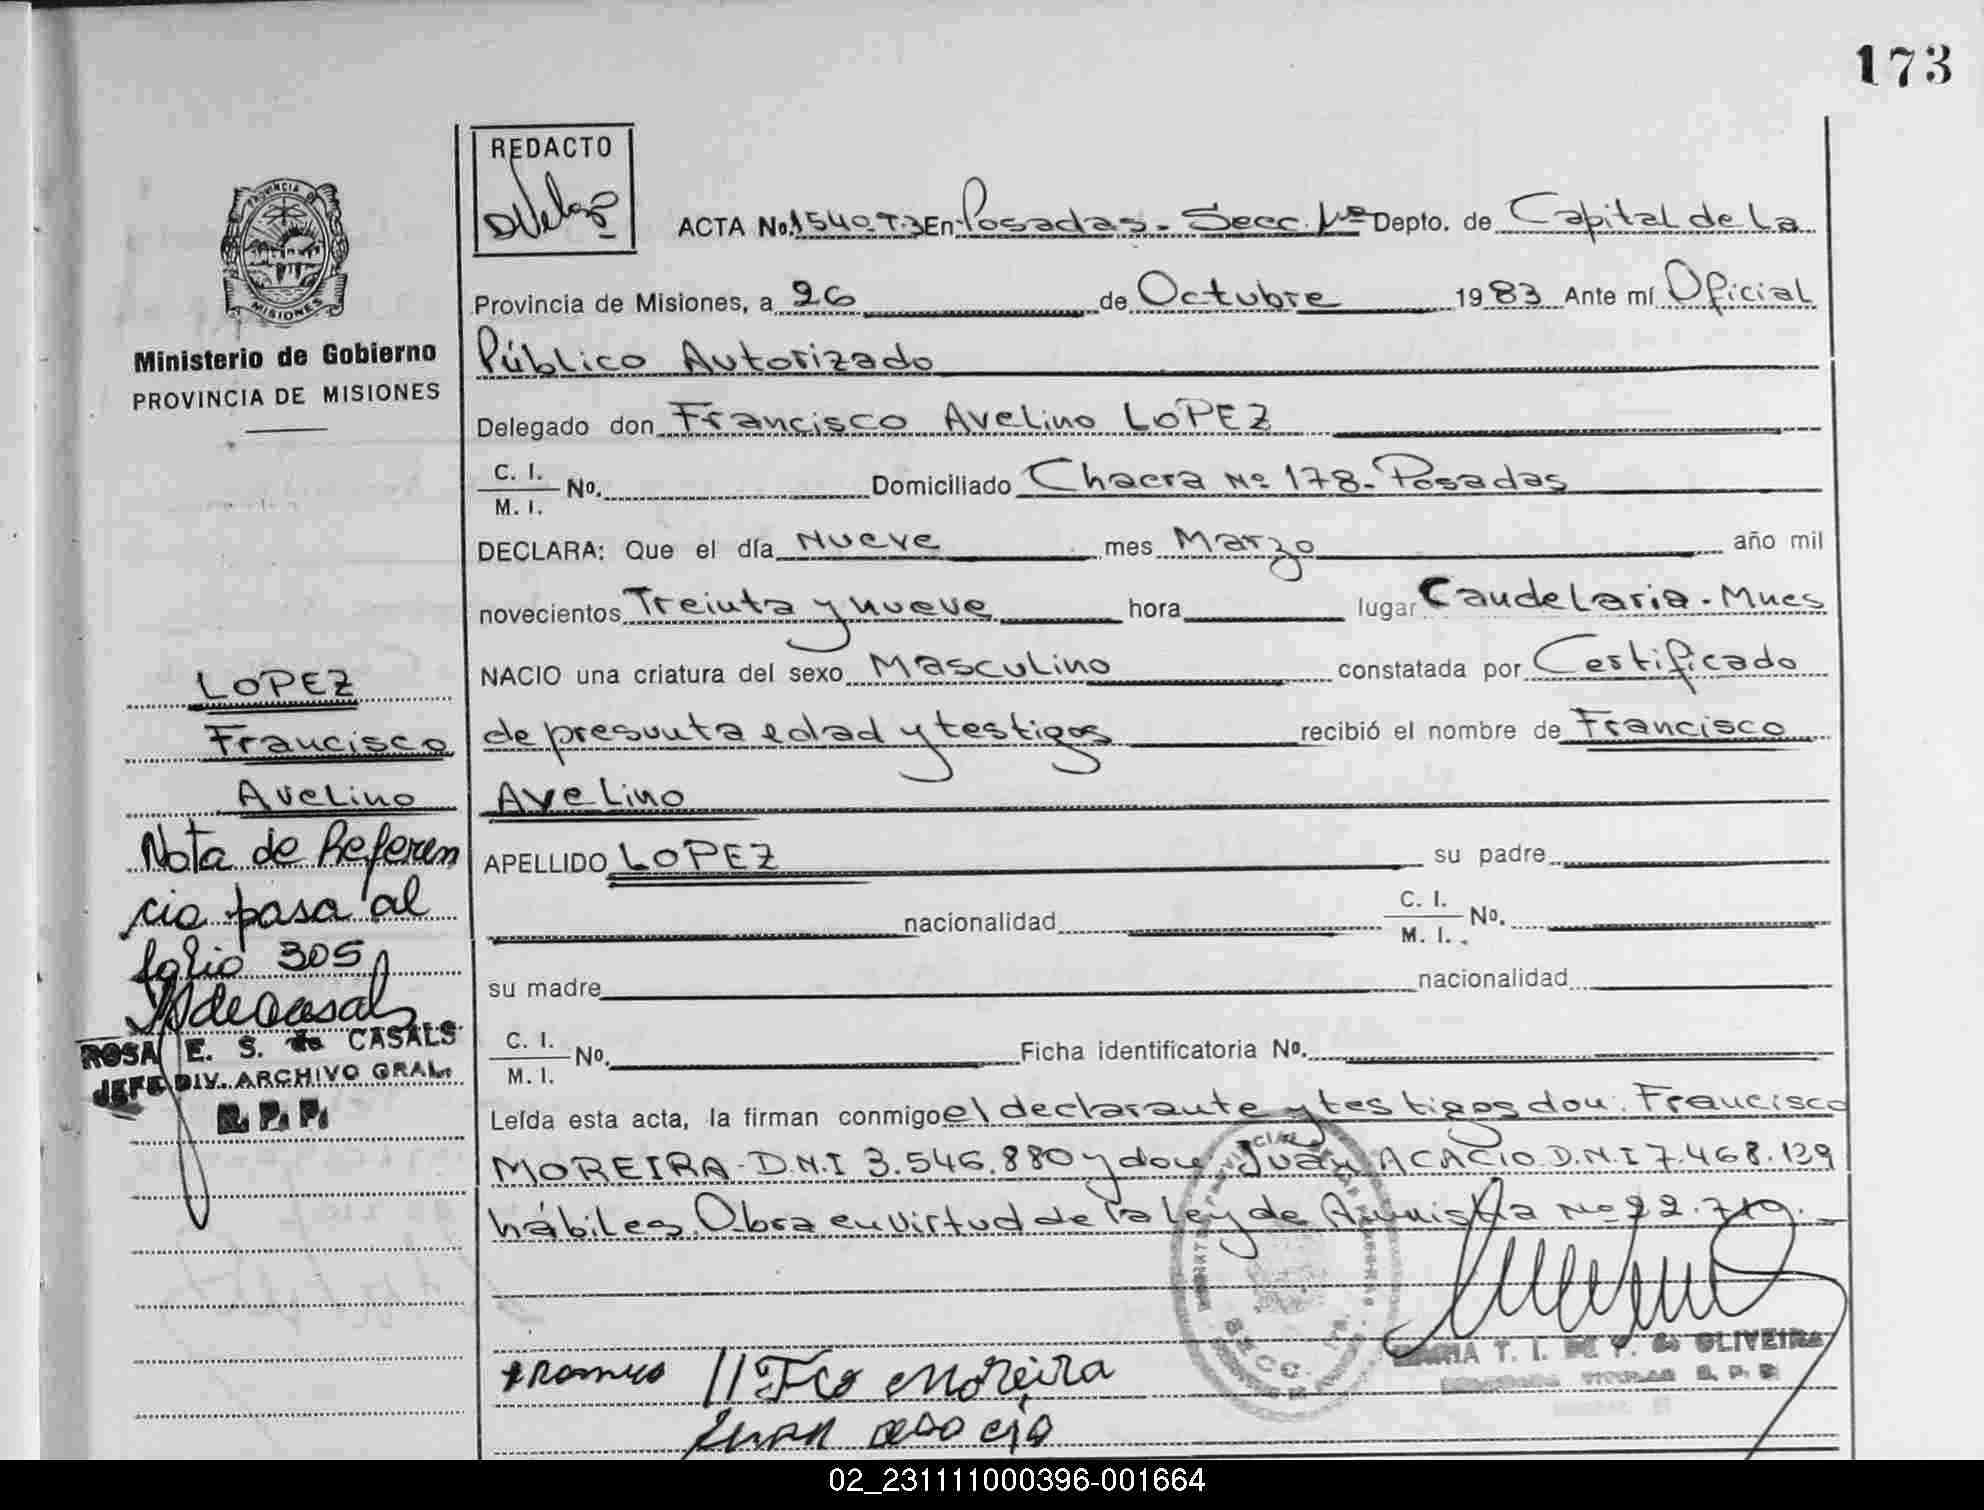 173
REDACTO
PROVINCIA DE
MISIONES
Ministerio de Gobierno
PROVINCIA DE MISIONES
ACTA No. 1540-T.3 En Posadas - Secc. 1ra Depto. de Capital de La
Provincia de Misiones, a 26 de Octubre 1983 Ante mí Oficial
Público Autorizado
Delegado don Francisco Avelino LOPEZ
C. I.
M. I. No. Domiciliado Chacra Nº 178 - Posadas
DECLARA: Que el día Nueve mes Marzo año mil
novecientos Treinta y nueve hora lugar Candelaria - Mnes
NACIO una criatura del sexo Masculino constatada por Certificado
de presunta edad y testigos recibió el nombre de Francisco
Avelino
APELLIDO LOPEZ su padre
nacionalidad C. I.
M. I. No.
su madre nacionalidad
C. I.
M. I. No. Ficha identificatoria No.
Leída esta acta, la firman conmigo el declarante y testigos don: Francisco
MOREIRA - D.N.I 3.546.880 y don Juan ACACIO D.N.I 7.468.139
hábiles. Obra en virtud de la ley de Amnistia Nº 22.719.
LOPEZ
Francisco
Avelino
Nota de Referen
cia pasa al
folio 305
ROSA E. S. de CASALS
JEFE DIV. ARCHIVO GRAL.
R. P. P.
Fco Moreira
Juan
SECC. 1ra.
MARIA T. I. DE F. de OLIVEIRA
02_231111000396-001664